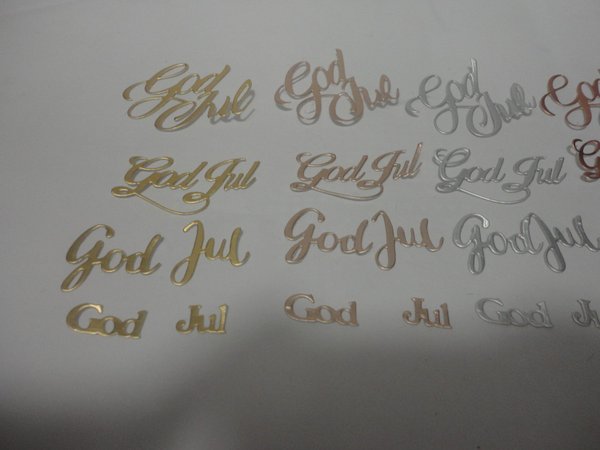 God Jul God Jul God Jul
God Jul God Jul God Jul
God Jul God Jul God Jul
God Jul God Jul God